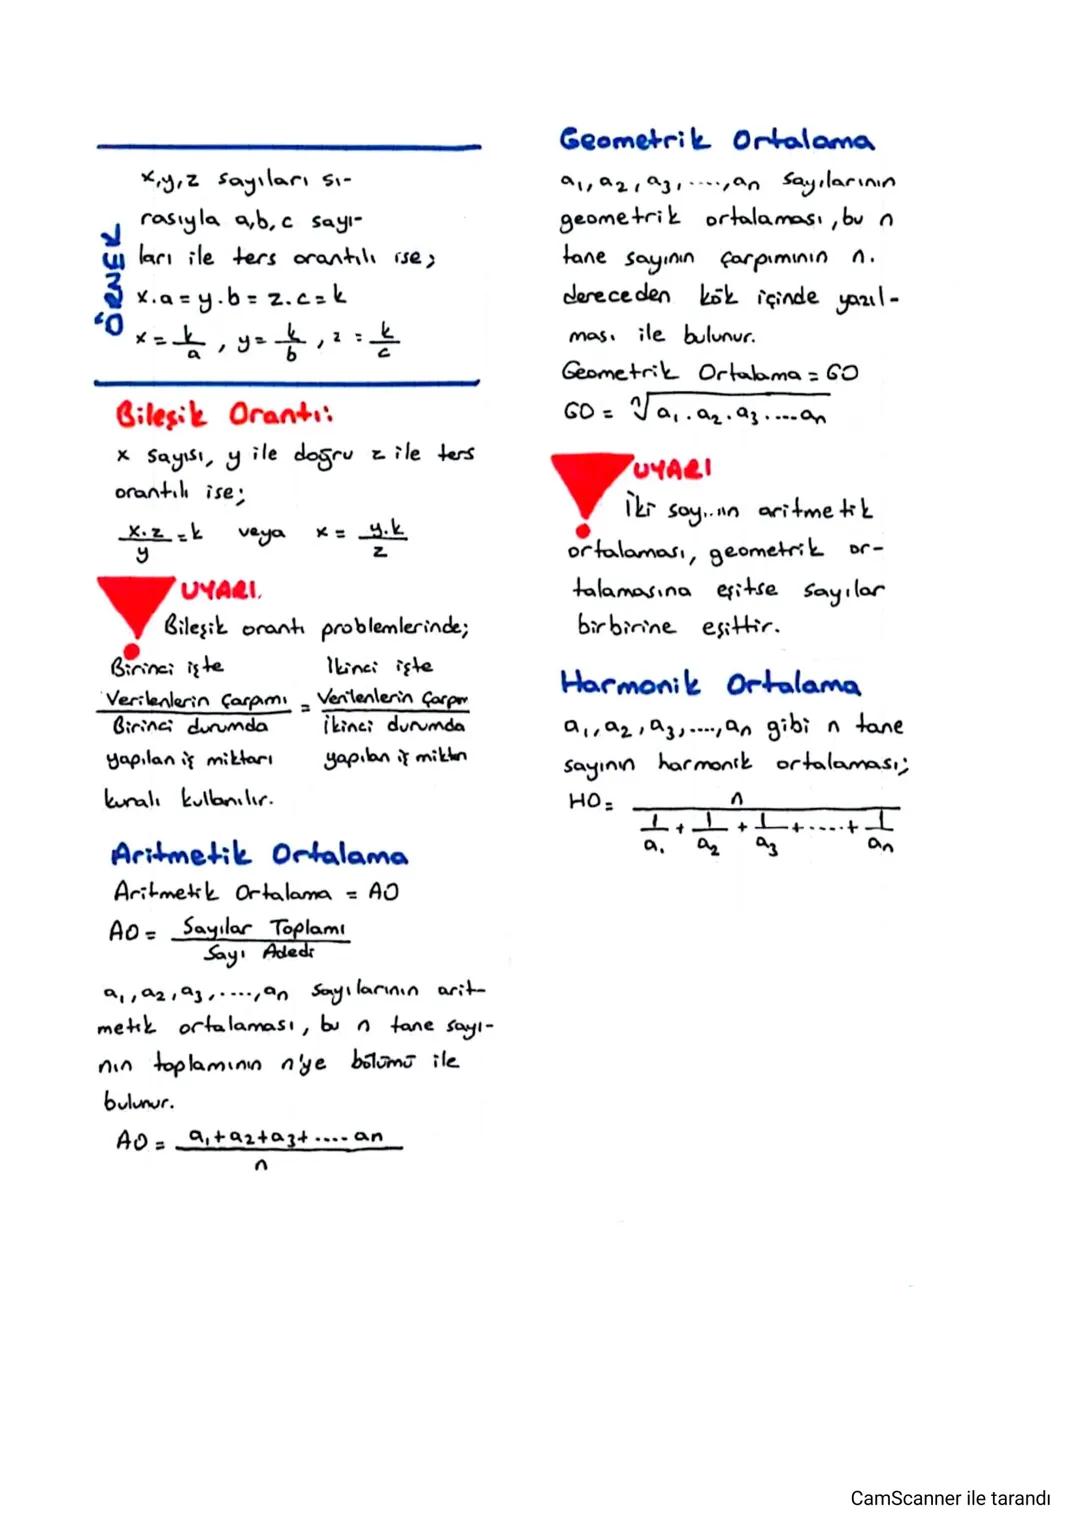 ÖRNEK
x,y,z sayıları sı-
rasıyla a,b,c sayı-
ları ile ters orantılı ise;
x.a = y.b = z.c = k
x = k/a , y = k/b , z = k/c
Bileşik Orantı:
x sayısı, y ile doğru z ile ters
orantılı ise;
x.z/y = k veya x = y.k/z
UYARI.
Bileşik orantı problemlerinde;
Birinci işte İkinci işte
Verilenlerin Çarpımı = Verilenlerin Çarpım
Birinci durumda İkinci durumda
yapılan iş miktarı yapılan iş miktarı
kuralı kullanılır.
Aritmetik Ortalama
Aritmetik Ortalama = AO
AO = Sayılar Toplamı / Sayı Adedi
a₁, a₂, a₃, ...., an sayılarının arit-
metik ortalaması, bu n tane sayı-
nın toplamının n'ye bölümü ile
bulunur.
AO = a₁+a₂+a₃+.... an / n
Geometrik Ortalama
a₁, a₂, a₃, ...., an sayılarının
geometrik ortalaması, bu n
tane sayının çarpımının n.
dereceden kök içinde yazıl-
ması ile bulunur.
Geometrik Ortalama = GO
GO = ⁿ√a₁.a₂.a₃.....an
UYARI
İki sayının aritmetik
ortalaması, geometrik or-
talamasına eşitse sayılar
birbirine eşittir.
Harmonik Ortalama
a₁, a₂, a₃, ...., an gibi n tane
sayının harmonik ortalaması;
HO = n / 1/a₁ + 1/a₂ + 1/a₃ + ..... + 1/an
CamScanner ile tarandı